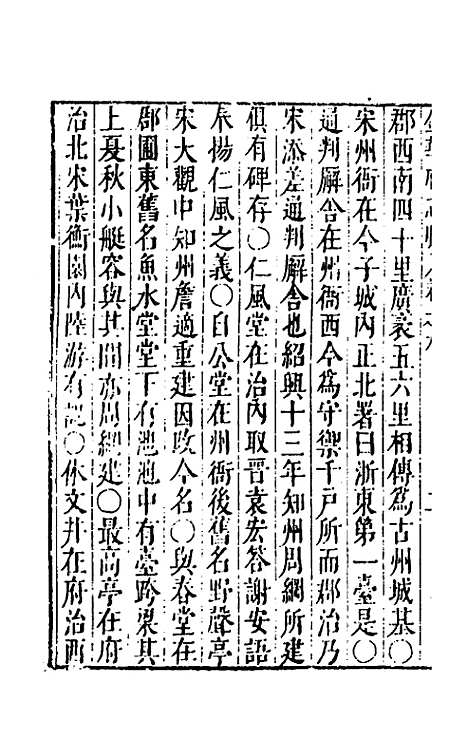 郡西南四十里廣袤五六里相傳為古州城基○
宋州衙在今子城內正北署曰浙東第一臺是○
通判廨舍在州衙西今為守禦千戸所而郡治乃
宋添差通判廨舍也紹興十三年知州周綱所建
俱有碑存○仁風堂在治內取晉袁宏答謝安語
奉揚仁風之義○自公堂在州衙後舊名野聲亭
宋大觀中知州詹適重建因改今名○與春堂在
郡圃東舊名魚水堂堂下有池池中有臺跨梁其
上夏秋小艇容與其間亦周綱建○最高亭在府
治北宋葉衡園內陸游有記○休文井在府治西